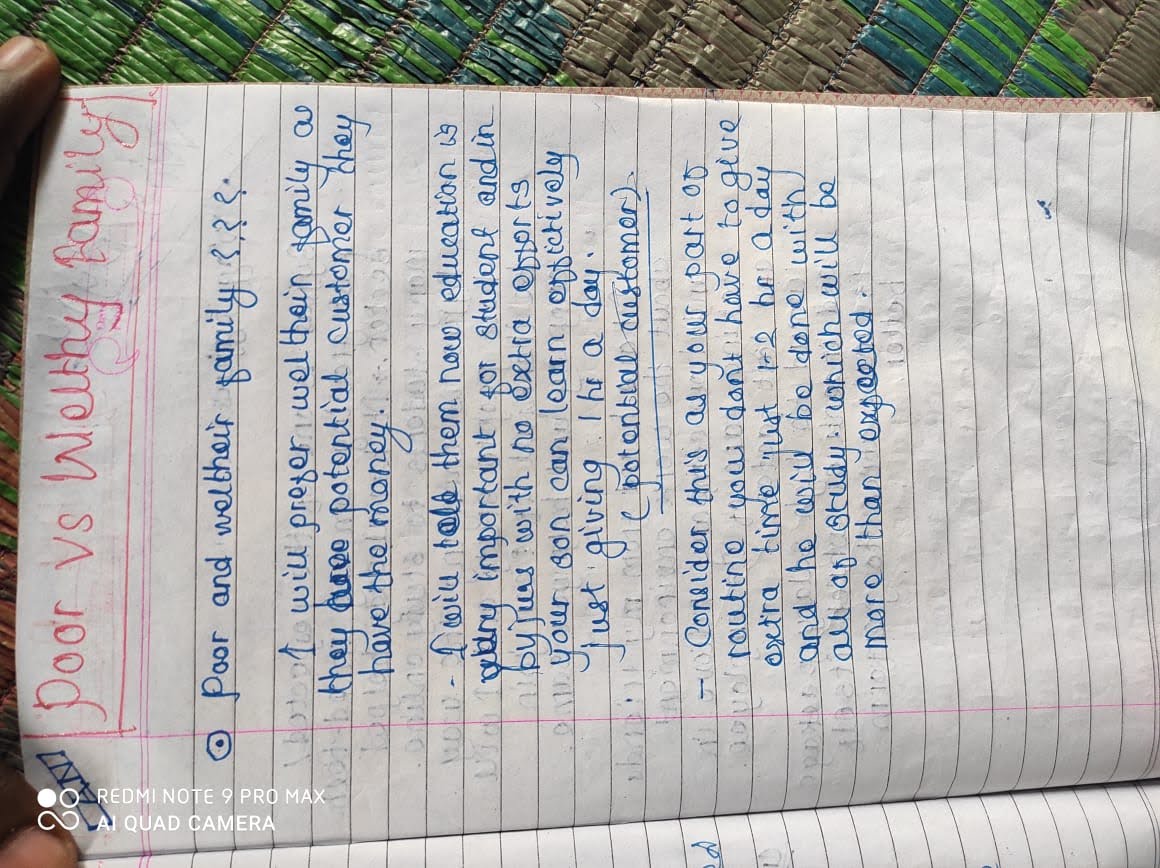 Poor vs Welthy family
REDMI NOTE 9 PRO MAX
AI QUAD CAMERA
Poor and weltheir family ???.
I will prefer welthein family as
they have potential customer they
have the money.
- I will told them now education is
very important for student and in
byjuus with no extra efforts
your son can learn effictively
just giving 1 hr a day.
(potential customer).
- Consider this as your part of
routine you dont have to give
extra time just 1-2 hr a day
and he will be done with
all of study which will be
more than expected.